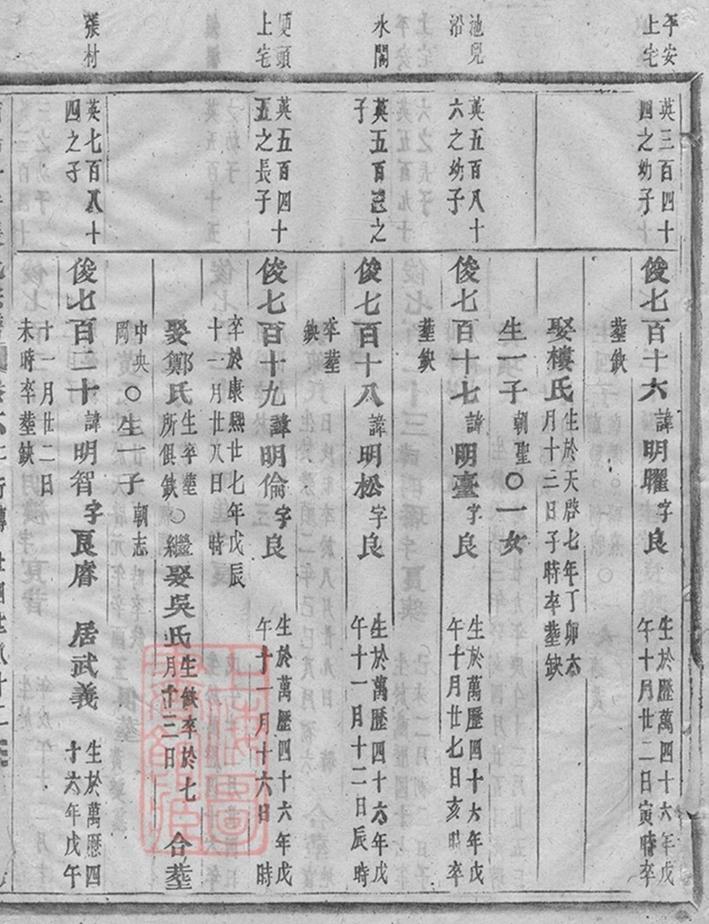 平安
上宅
英三百四十
四之幼子
俊七百十六諱明曜字良
生於萬歷四十六年戊
午十月廿二日寅時卒
葬缺
娶樓氏
生於天啟七年丁卯六
月十二日子時卒葬缺
生一子朝聖○一女
池兒
沿
英五百八十
六之幼子
俊七百十七諱明臺字良
生於萬歷四十六年戊
午十月廿七日亥時卒
葬缺
水閣
英五百
之
子
俊七百十八諱明松字良
生於萬歷四十六年戊
午十一月十二日辰時
卒葬
缺
更頭
上宅
英五百四十
五之長子
俊七百十九諱明倫字良
生於萬歷四十六年戊
午十一月十六日時
卒於康熙廿七年戊辰
十二月廿八日時
娶鄭氏
生卒葬
所俱缺
○繼娶吳氏
生缺卒於七
月十三日
合葬
中央
岡
○生一子朝志
張村
英七百八十
四之子
俊七百二十諱明智字良睿居武義
生於萬歷四
十六年戊午
十一月廿二日
未時卒葬缺